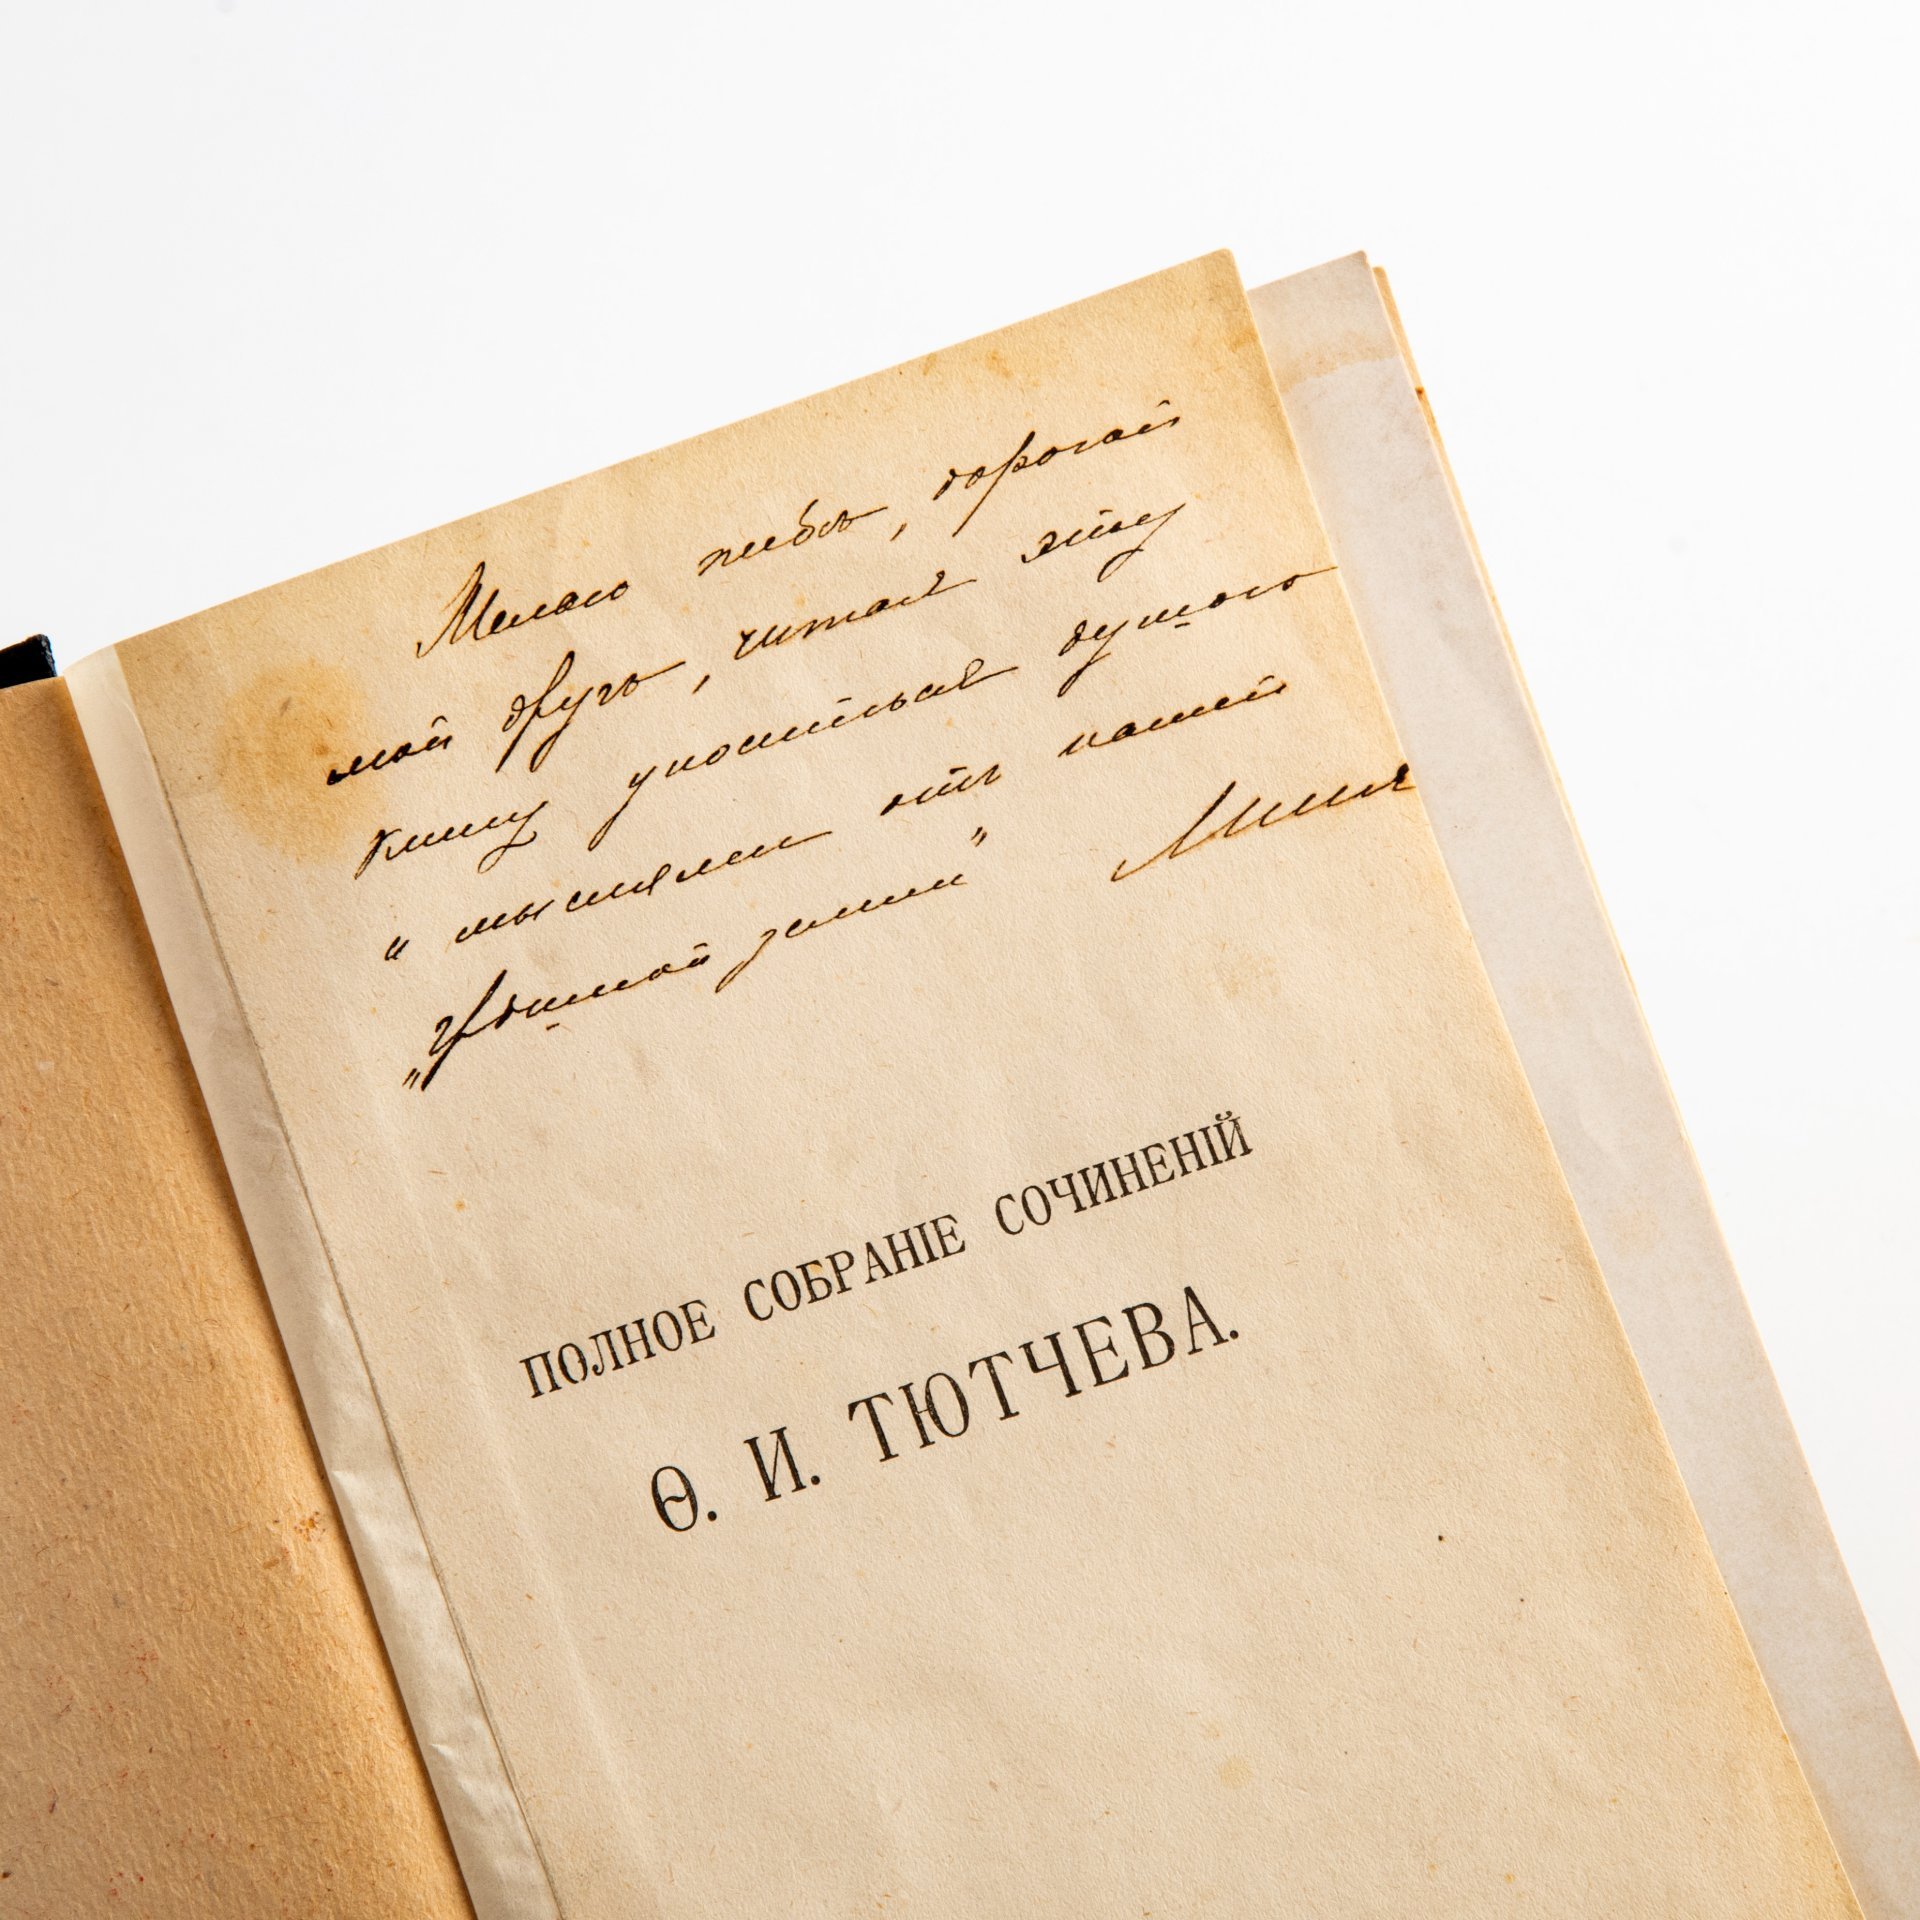 Желаю тебѣ, дорогой
мой другъ, читая эту
книгу уноситься душою
„ мыслями отъ нашей
„грѣшной земли" Миля
ПОЛНОЕ СОБРАНІЕ СОЧИНЕНІЙ
Ѳ. И. ТЮТЧЕВА.